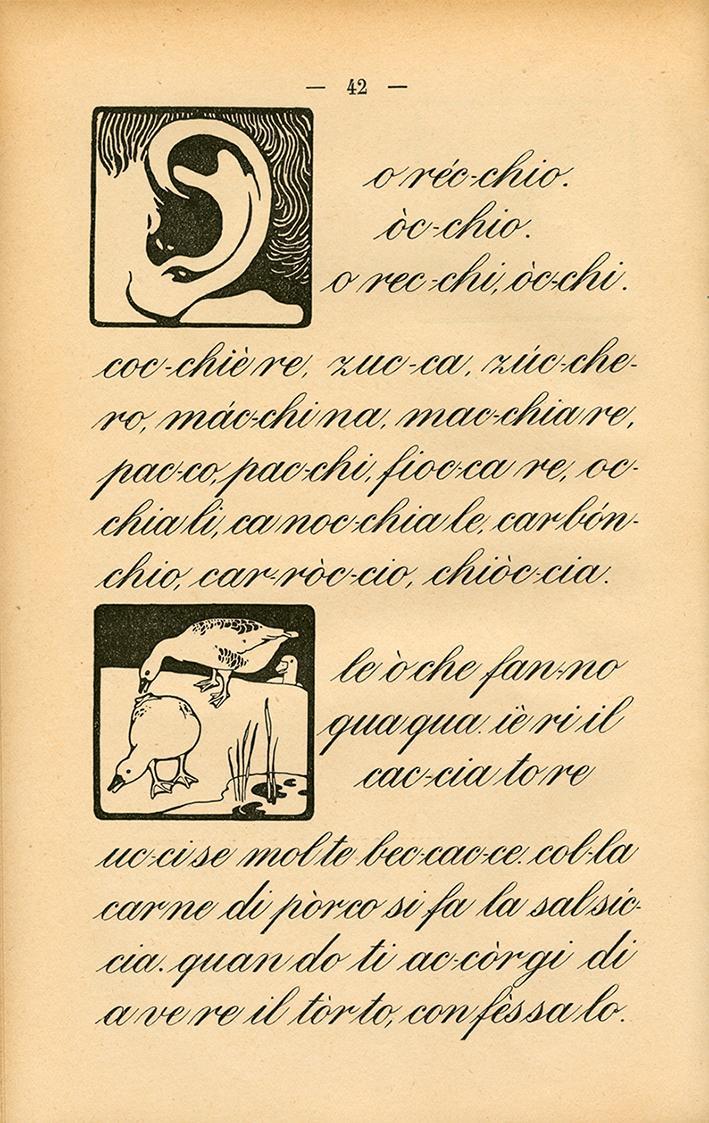 — 42 —
o réc-chio.
òc-chio.
o rec-chi, òc-chi.
coc-chiè re, zuc-ca, zúc-che-
ro, mác-chi na, mac-chia re,
pac-co, pac-chi, fioc-ca re, oc-
chia li, ca noc-chia le, car bón-
chio, car-ròc-cio, chiòc-cia.
le ò che fan-no
qua qua. iè ri il
cac-cia to re
uc-ci se mol te bec-cac-ce. col-la
car ne di pòr co si fa la sal síc-
cia. quan do ti ac-còr gi di
a ve re il tòr to, con fès sa lo.